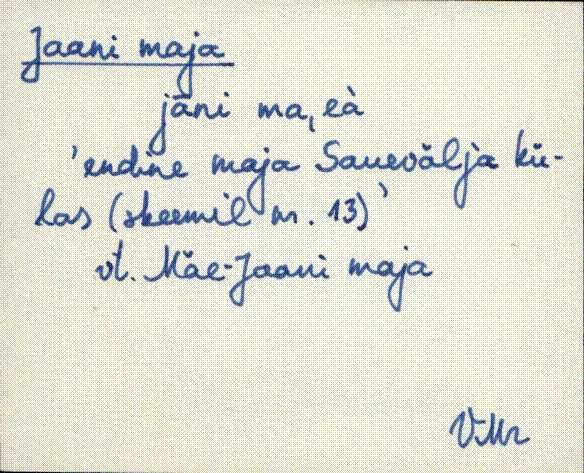 Jaani maja
jāni ma͵eà
'endine maja Sauevälja kü-
las (skeemil nr. 13)'
vt. Mäe-Jaani maja
V.Mr